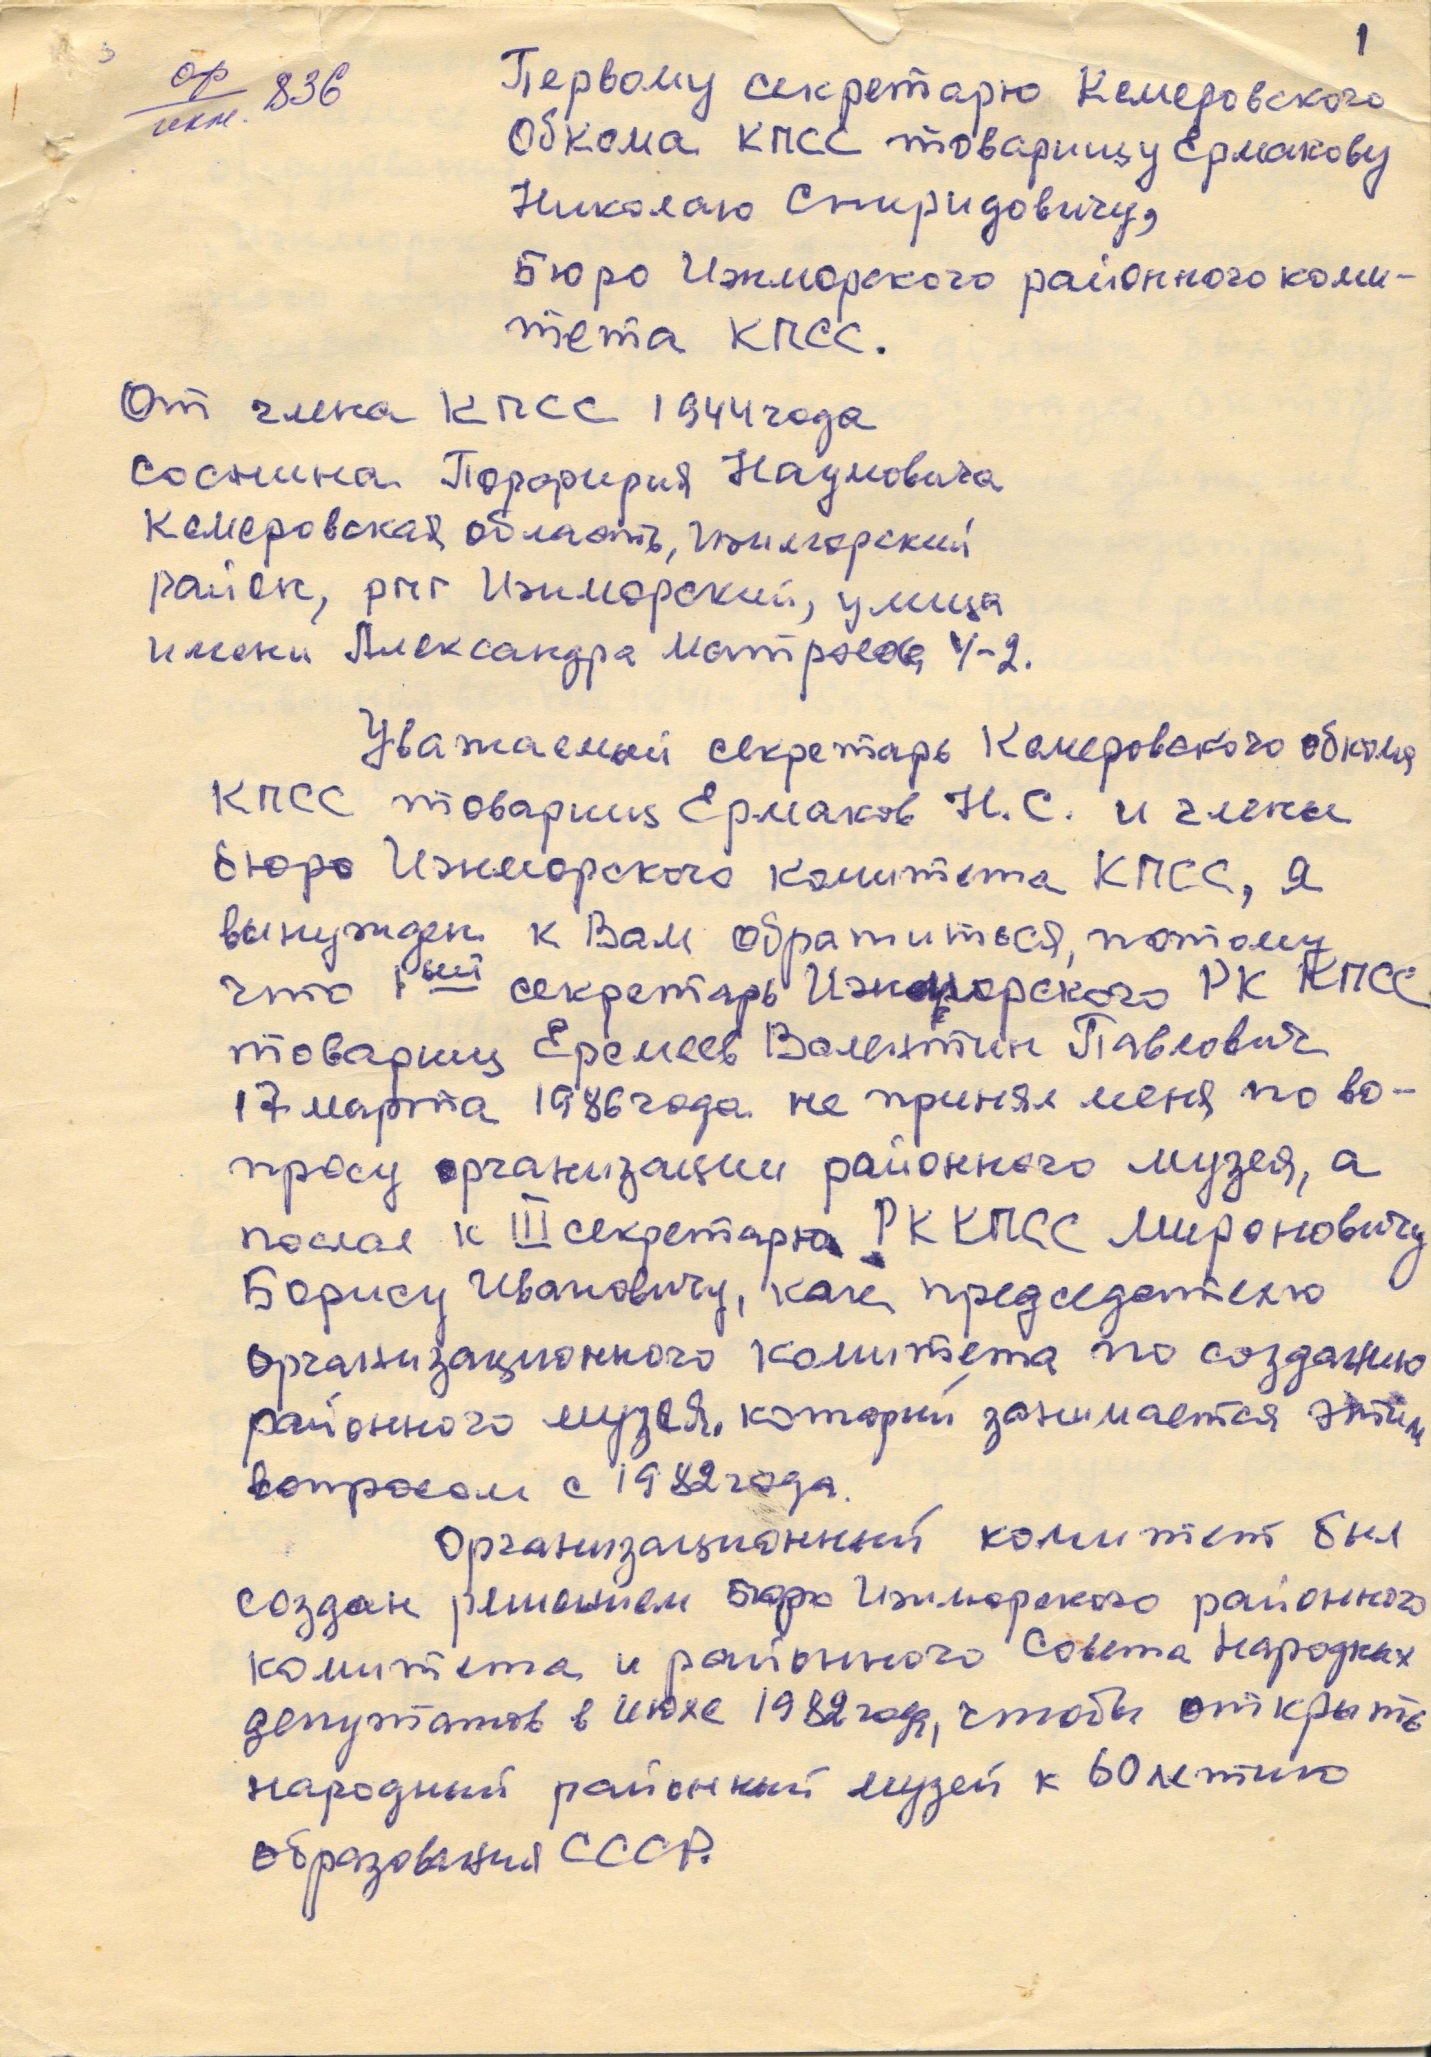 1
ор
инн. 836
Первому секретарю Кемеровского
Обкома КПСС товарищу Ермакову
Николаю Спиридовичу,
Бюро Ижморского районного коми-
тета КПСС.
От члена КПСС 1944 года
Соснина Порфирия Наумовича
Кемеровская область, Ижморский
район, рпг Ижморский, улица
имени Александра Матросова 4-2.
Уважаемый секретарь Кемеровского обкома
КПСС товарищ Ермаков Н.С. и члены
бюро Ижморского комитета КПСС, я
вынужден к Вам обратиться, потому
что 1ый секретарь Ижморского РК КПСС
товарищ Еремеев Валентин Павлович
17 марта 1986 года не принял меня по во-
просу организации районного музея, а
послал к III секретарю РК КПСС Мироновичу
Борису Ивановичу, как председателю
организационного комитета по созданию
районного музея, который занимается этим
вопросом с 1982 года.
Организационный комитет был
создан решением бюро Ижморского районного
комитета и районного Совета Народных
депутатов в июле 1982 года, чтобы открыть
народный районный музей к 60 летию
образования СССР.